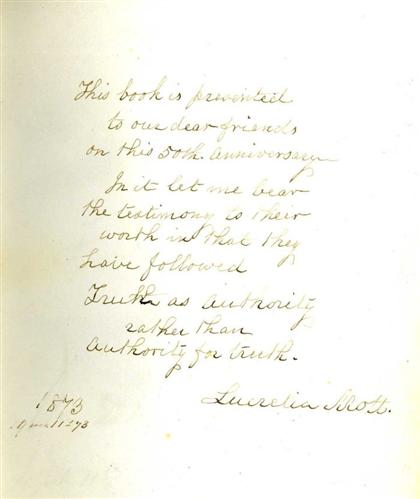 This book is presented
to our dear friends
on this 50th. anniversary
In it let me bear
the testimony to their
worth in that they
have followed
Truth as authority
rather than
authority for truth.
Lucretia Mott.
1873